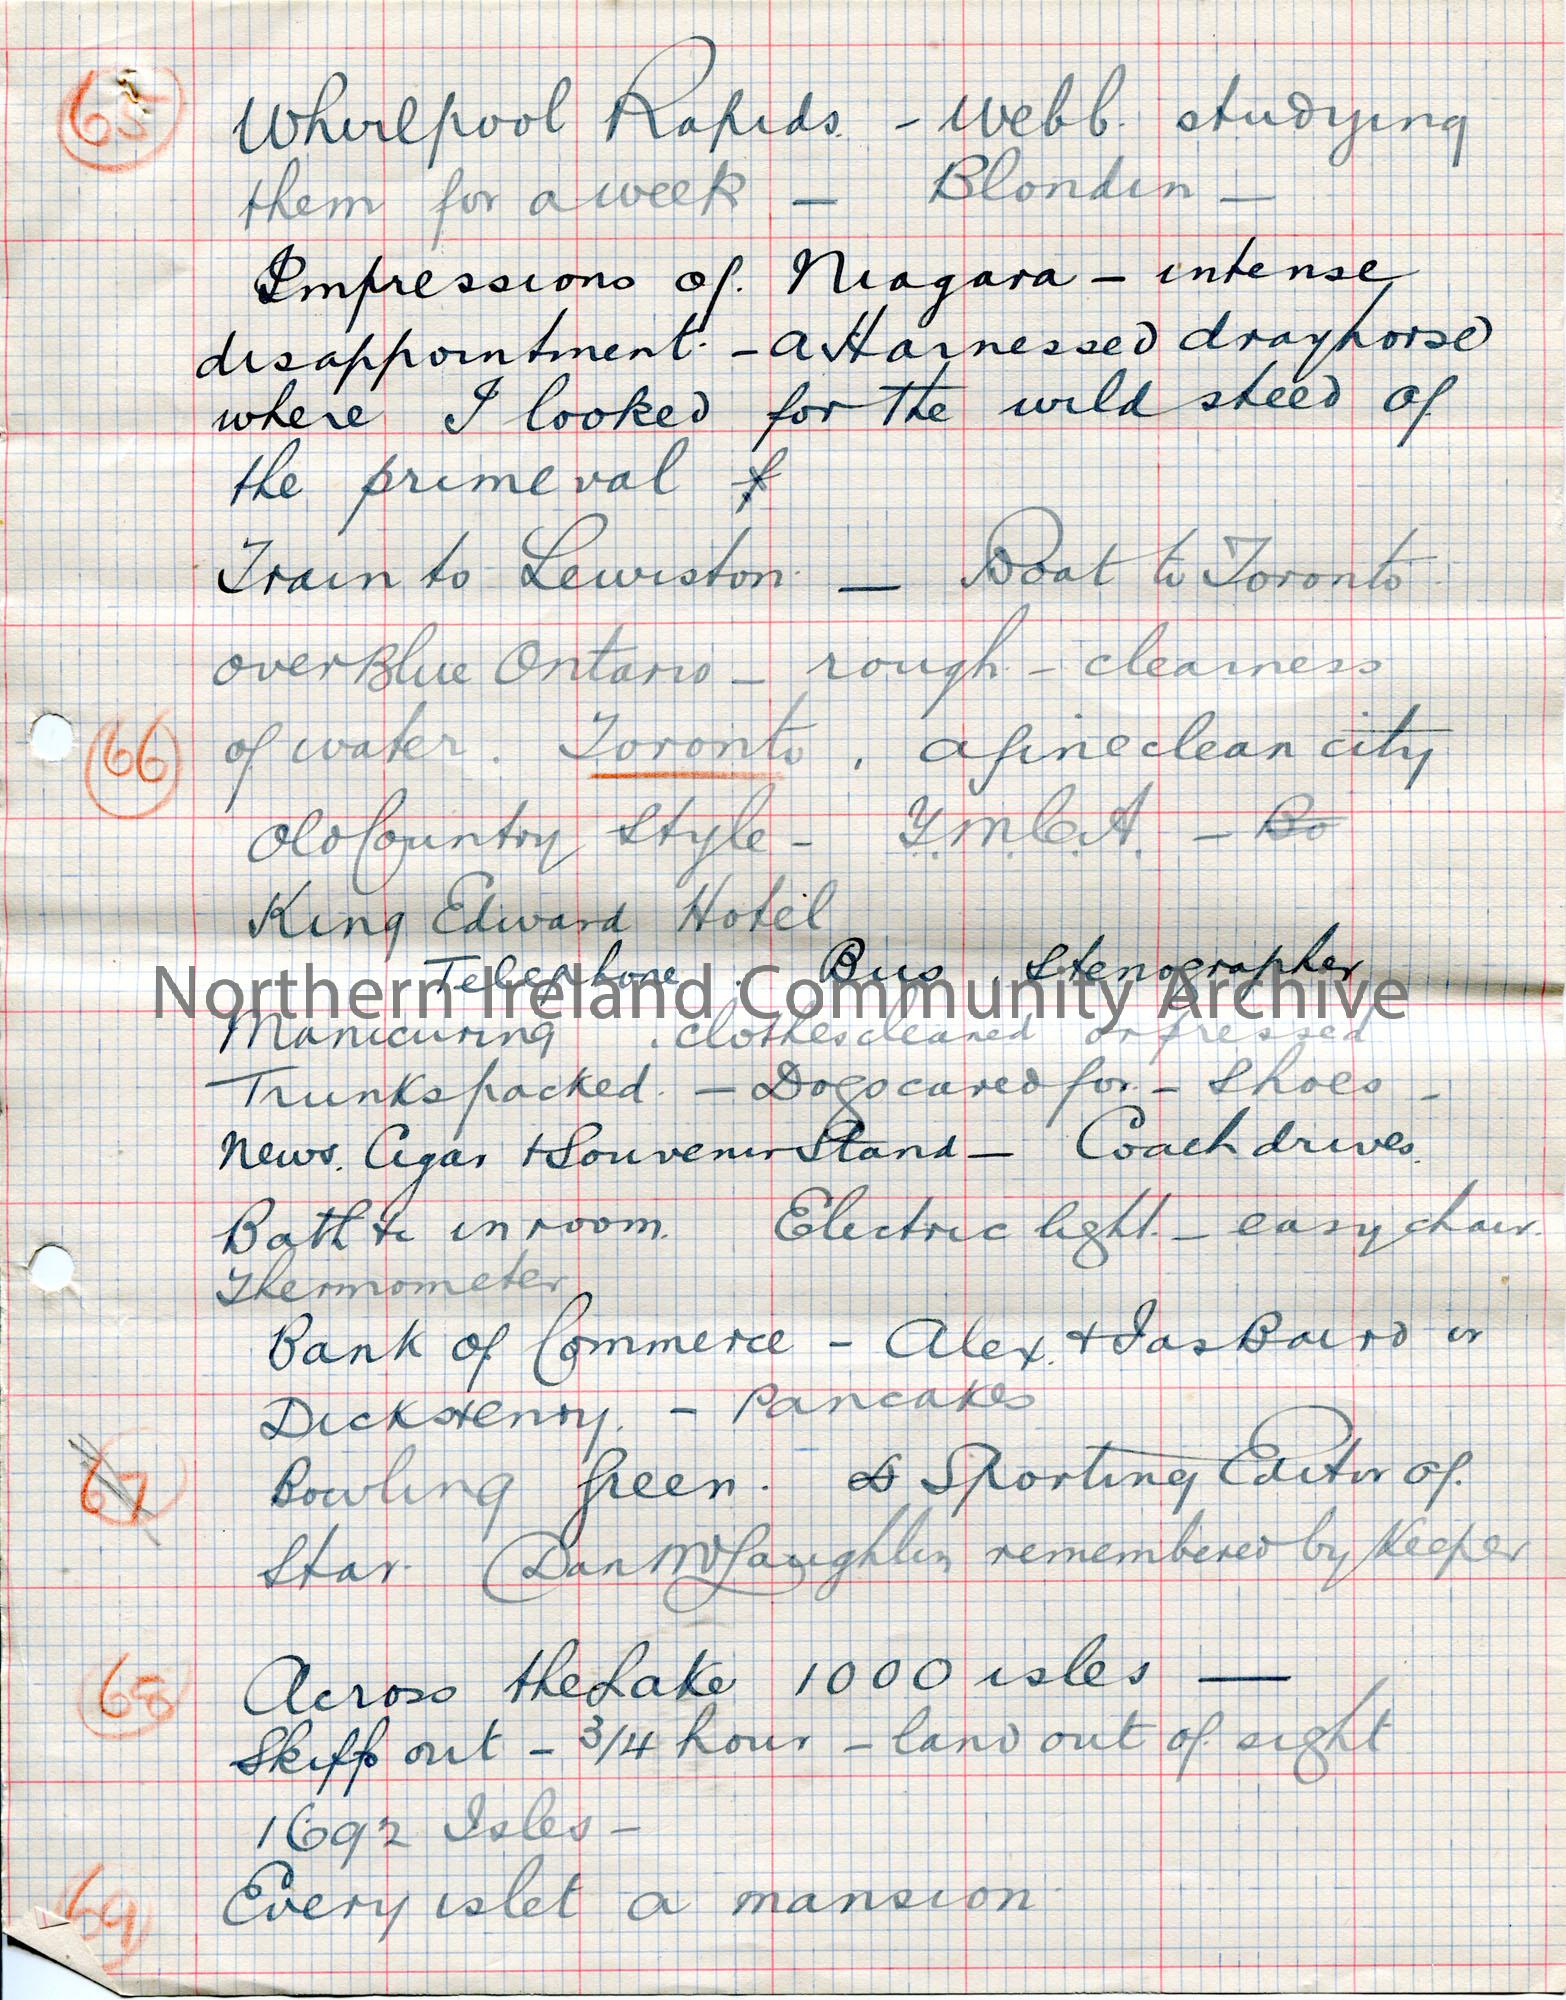 65 Whirlpool Rapids. - Webb. studying
them for a week — Blondin —
Impressions of Niagara - intense
disappointment - a Harnessed drayhorse
where I looked for the wild steed of
the primeval
Train to Lewiston — Boat to Toronto
over Blue Ontario - rough - clearness
66 of water. Toronto, a fine clean city
Old Country style - Y.M.C.A. - Bo
King Edward Hotel
Telephone. Bus. Stenographer
Northern Ireland Community Archive
Manicuring. clothes cleaned or pressed
Trunks packed. - Dogs cared for. - Shoes -
News. Cigar + Souvenir Stand — Coach drives.
Bath &c in room. Electric light. - easy chair.
Thermometer
Bank of Commerce - Alex. + Jas Baird or
Dick Henry. - Pancakes
67 Bowling Green. Sporting Editor of
Star. Dan McLaughlin remembered by Keeper
68 Across the Lake 1000 isles —
Skiff out - 3/4 hour - land out of sight
1692 Isles -
69 Every islet a mansion